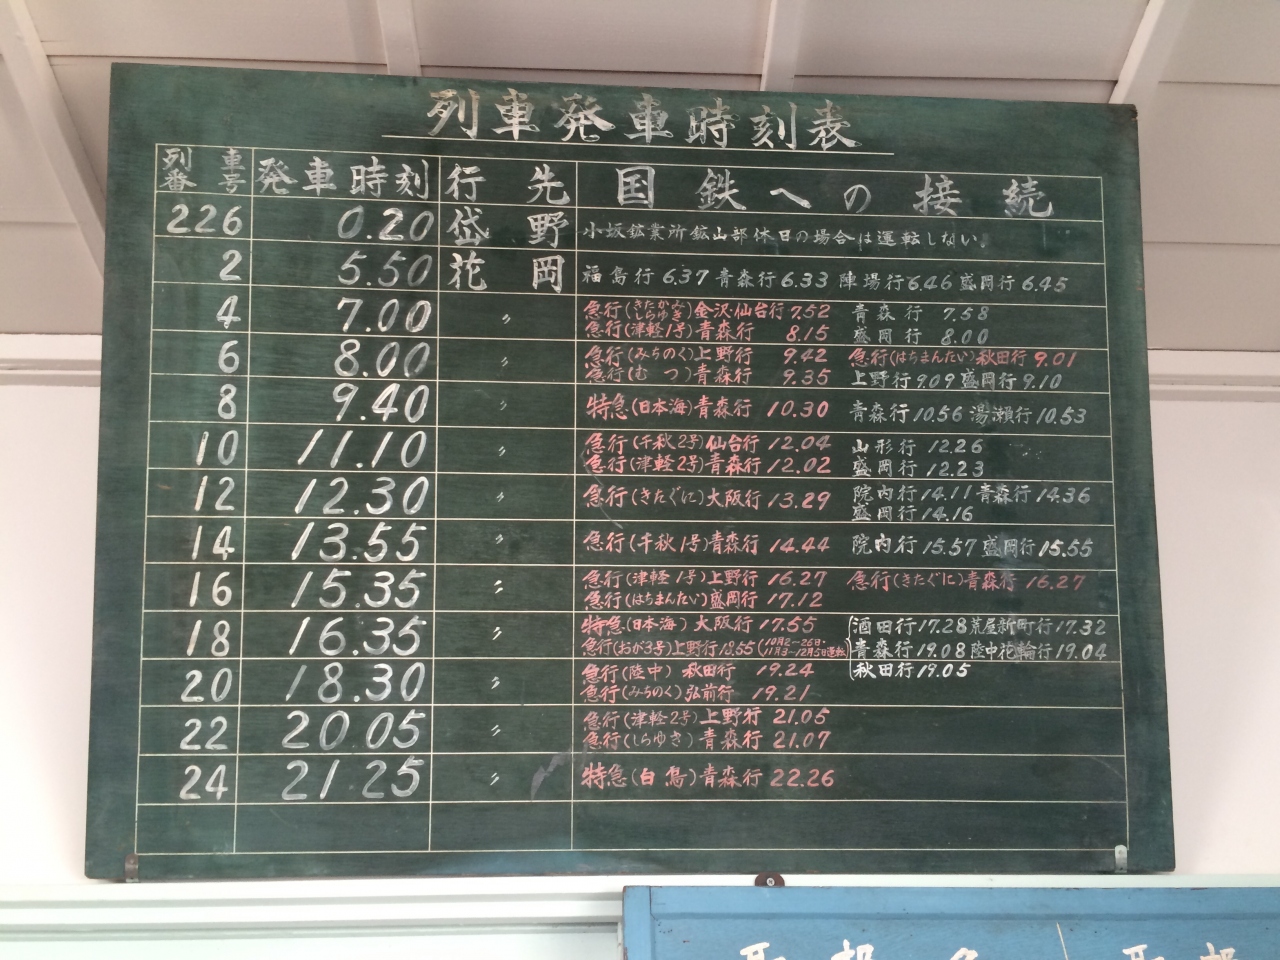 列車発車時刻表
列車番号 発車時刻 行先 国鉄への接続
226 0.20 岱野 小坂鉱業所鉱山部休日の場合は運転しない。
2 5.50 花岡 福島行 6.37 青森行 6.33 陣場行 6.46 盛岡行 6.45
4 7.00 〃 急行(きたかみ しらゆき)金沢・仙台行 7.52 青森行 7.58
急行(津軽1号)青森行 8.15 盛岡行 8.00
6 8.00 〃 急行(みちのく)上野行 9.42 急行(はちまんたい)秋田行 9.01
急行(むつ)青森行 9.35 上野行 9.09 盛岡行 9.10
8 9.40 〃 特急(日本海)青森行 10.30 青森行 10.56 湯瀬行 10.53
10 11.10 〃 急行(千秋2号)仙台行 12.04 山形行 12.26
急行(津軽2号)青森行 12.02 盛岡行 12.23
12 12.30 〃 急行(きたぐに)大阪行 13.29 院内行 14.11 青森行 14.36
盛岡行 14.16
14 13.55 〃 急行(千秋1号)青森行 14.44 院内行 15.57 盛岡行 15.55
16 15.35 〃 急行(津軽1号)上野行 16.27 急行(きたぐに)青森行 16.27
急行(はちまんたい)盛岡行 17.12
18 16.35 〃 特急(日本海)大阪行 17.55 酒田行 17.28 荒屋新町行 17.32
急行(おが3号)上野行 18.55(10月2~26日・11月3~12月5日運転) 青森行 19.08 陸中花輪行 19.04
20 18.30 〃 急行(陸中)秋田行 19.24 秋田行 19.05
急行(みちのく)弘前行 19.21
22 20.05 〃 急行(津軽2号)上野行 21.05
急行(しらゆき)青森行 21.07
24 21.25 〃 特急(白鳥)青森行 22.26